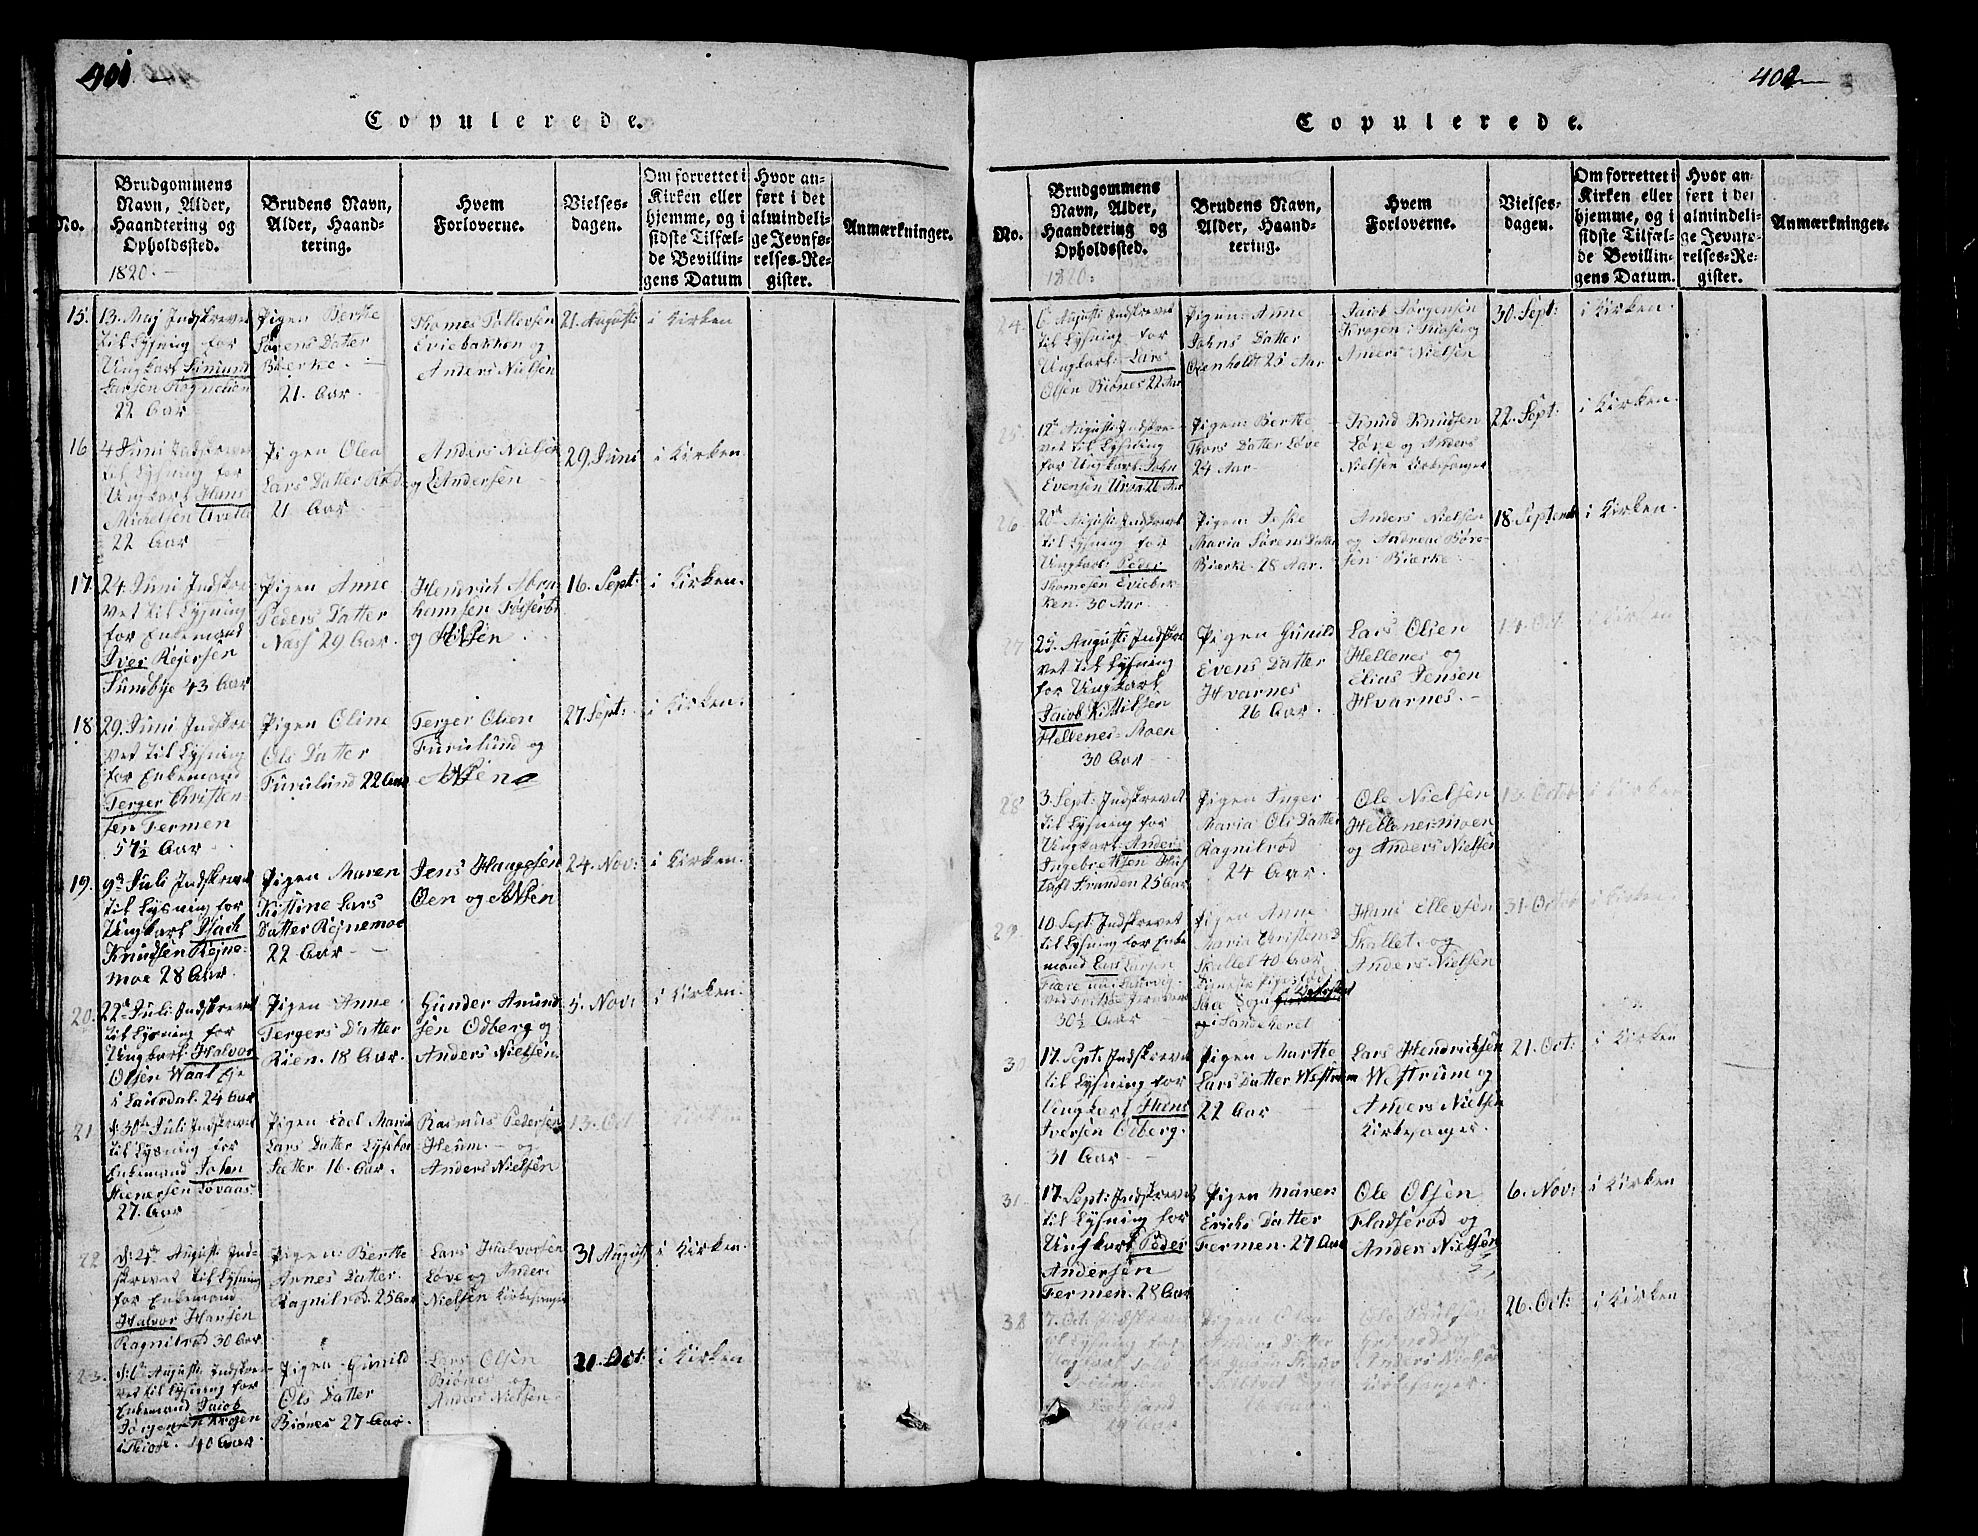 401
Copulerede.
No.
Brudgommens
Navn, Alder,
Haandtering og
Opholdssted.
1820.
Brudens Navn,
Alder, Haand-
tering.
Hvem
Forloverne.
Vielses-
dagen.
Om forrettet i
Kirken eller
hjemme, og i
sidste Tilfæl-
de Bevillin-
gens Datum
Hvor an-
ført i det
almindeli-
ge Jevnfø-
relses-Re-
gister.
Anmærkninger.
15.
13. Maj Indskrevet
til Lysning for
Ungkarl Simund
Larsen
22 Aar
Pigen Berthe
Sørens Datter
Bierke.
21. Aar
Thomes Tollevsen
Eviebakken og
Anders Nielsen
21. Augusti
i Kirken
16
4 Juni Indskrevet
til Lysning for
Ungkarl Hans
Michelsen
22 Aar
Pigen Olea
Lars Datter
21 Aar
Anders Nielsen
og Andersen
29. Juni
i Kirken
17.
24. Juni Indskre-
vet til Lysning
for Enkemand
Iver Rejersen
Sundbye 43 Aar
Pigen Anne
Peders Datter
Næss 29 Aar.
Hendrich Abra
hamsen
og ANsen
16. Sept:
i Kirken.
18
29. Juni Indskre-
vet til Lysning
for Enkemand
Terger Christen
sen Fermen
57½ Aar
Pigen Oline
Ols Datter
Furulund 22 Aar
Terger Olsen
Furulund og
ANsen
27. Sept:
i Kirken.
19.
9de Juli Indskrevet
til Lysning for
Ungkarl Isach
Knudsen Rejne-
moe 28 Aar.
Pigen Maren
Kistine Lars
Datter Rejnemoe
22 Aar
Jens Haagesen
Oen og ANsen
24. Nov:
i Kirken.
20.
22de Juli Indskrevet
til Lysning for
Ungkarl Halvor
Olsen
i Laurdal. 24 Aar
Pigen Anne
Tergers Datter
Rien. 18 Aar.
Gunder Amund
sen Odberg og
Anders Nielsen
5. Nov:
i Kirken.
21
d: 30te Juli Indskrevet
til Lysning for
Enkemand John
Steenersen
27. Aar
Pigen Edel Maria
Lars Datter
Sætter 16. Aar.
Rasmus Pedersen
Heum. og
Anders Nielsen
13. Oct
i Kirken
22
d: 4de Augusti Ind-
skrevet til Lysning
for Enkemand
Halvor Hansen
Ragnilrød 30 Aar.
Pigen Berthe
Arnes Datter
Ragnilrød. 25 Aar
Lars Halvorsen
Løve og Anders
Nielsen Kirkesanger
31 August
i Kirken.
23.
d: 6te Augusti Indskre-
vet til Lysning for
Enkemand Jacob
Jørgensen Krogen
40 Aar.
Pigen Gunild
Ols Datter
Biønes 27 Aar.
Lars Olsen
Biønes og
Anders Nielsen
21. Oct:
i Kirken
402
Copulerede.
No.
Brudgommens
Navn, Alder,
Haandtering og
Opholdssted.
1820.
Brudens Navn,
Alder, Haand-
tering.
Hvem
Forloverne.
Vielses-
dagen.
Om forrettet i
Kirken eller
hjemme, og i
sidste Tilfæl-
de Bevillin-
gens Datum.
Hvor an-
ført i det
almindeli-
ge Jevnfø-
relses-Re-
gister.
Anmærkninger.
24
6. Augusti Indskrevet
til Lysning for
Ungkarl: Lars
Olsen Biønes 22 Aar
Pigen: Anne
Johns Datter
Olenholdt 25 Aar
Jacob Jørgensen
Krogen i
Anders Nielsen
30. Sept:
i Kirken.
25.
12te Augusti Indskre-
vet til Lysning
for Ungkarl John
Evensen 26 Aar
Pigen: Berthe
Thors Datter Løve
24 Aar.
Knud Knudsen
Løve og Anders
Nielsen Kirkesanger
22. Sept:
i Kirken.
26.
20de Augusti Indskrevet
til Lysning for
Ungkarl Peder
Thomesen Eviebak-
ken. 30 Aar.
Pigen: Inger
Maria Sørens Datter
Bierke. 28 Aar.
Anders Nielsen
og Andreas Søre-
sen Bierke.
18. Septemb
i Kirken.
27
25. Augusti Indskre
vet til Lysning
for Ungkarl
Jacob Kittilsen
Hellenes-Moen
30 Aar
Pigen Gunild
Evens Datter
Hvarnes
26 Aar.
Lars Olsen
Hellenes og
Elias Jensen
Hvarnes.
14. Oct.
i Kirken
28
3. Sept: Indskrevet
til Lysning for
Ungkarl Anders
Ingebretsen
Stranden 25 Aar
Pigen Inger
Maria Ols Datter
Ragnilrød
24 Aar.
Ole Nielsen
Hellenes-moen
og Anders Nielsen
13. Octr
i Kirken
29.
10. Sept: Indskrevet
til Lysning for Enke
mand Lars Larsen
30½ Aar
Pigen Anne
Maria Christens D
Skallet 40 Aar
i Sandeheret
Hans Ellevsen
Skallet. og
Anders Nielsen
31. Octor
i Kirken.
30
17. Sept: Indskrevet
til Lysning for
Ungkarl Hans
Iversen Odberg.
31 Aar
Pigen Marthe
Lars Datter Westrum
22 Aar
Lars Hendrichsen
Westrum og
Anders Nielsen
Kirkesanger.
21. Oct:
i Kirken
31
17. Sept: Indskrevet
til Lysning for
Ungkarl Peder
Andersen
Fermen. 28 Aar
Pigen Maren
Erichs Datter
Fermen. 27 Aar
Ole Olsen
Fladserød og
Anders Nielsen
6. Nov:
i Kirken
32
7. Oct. Indskrevet
til Lysning for
Pigen Olea
Anders Nielsen
Kirkesanger.
26. Oct:
i Kirken